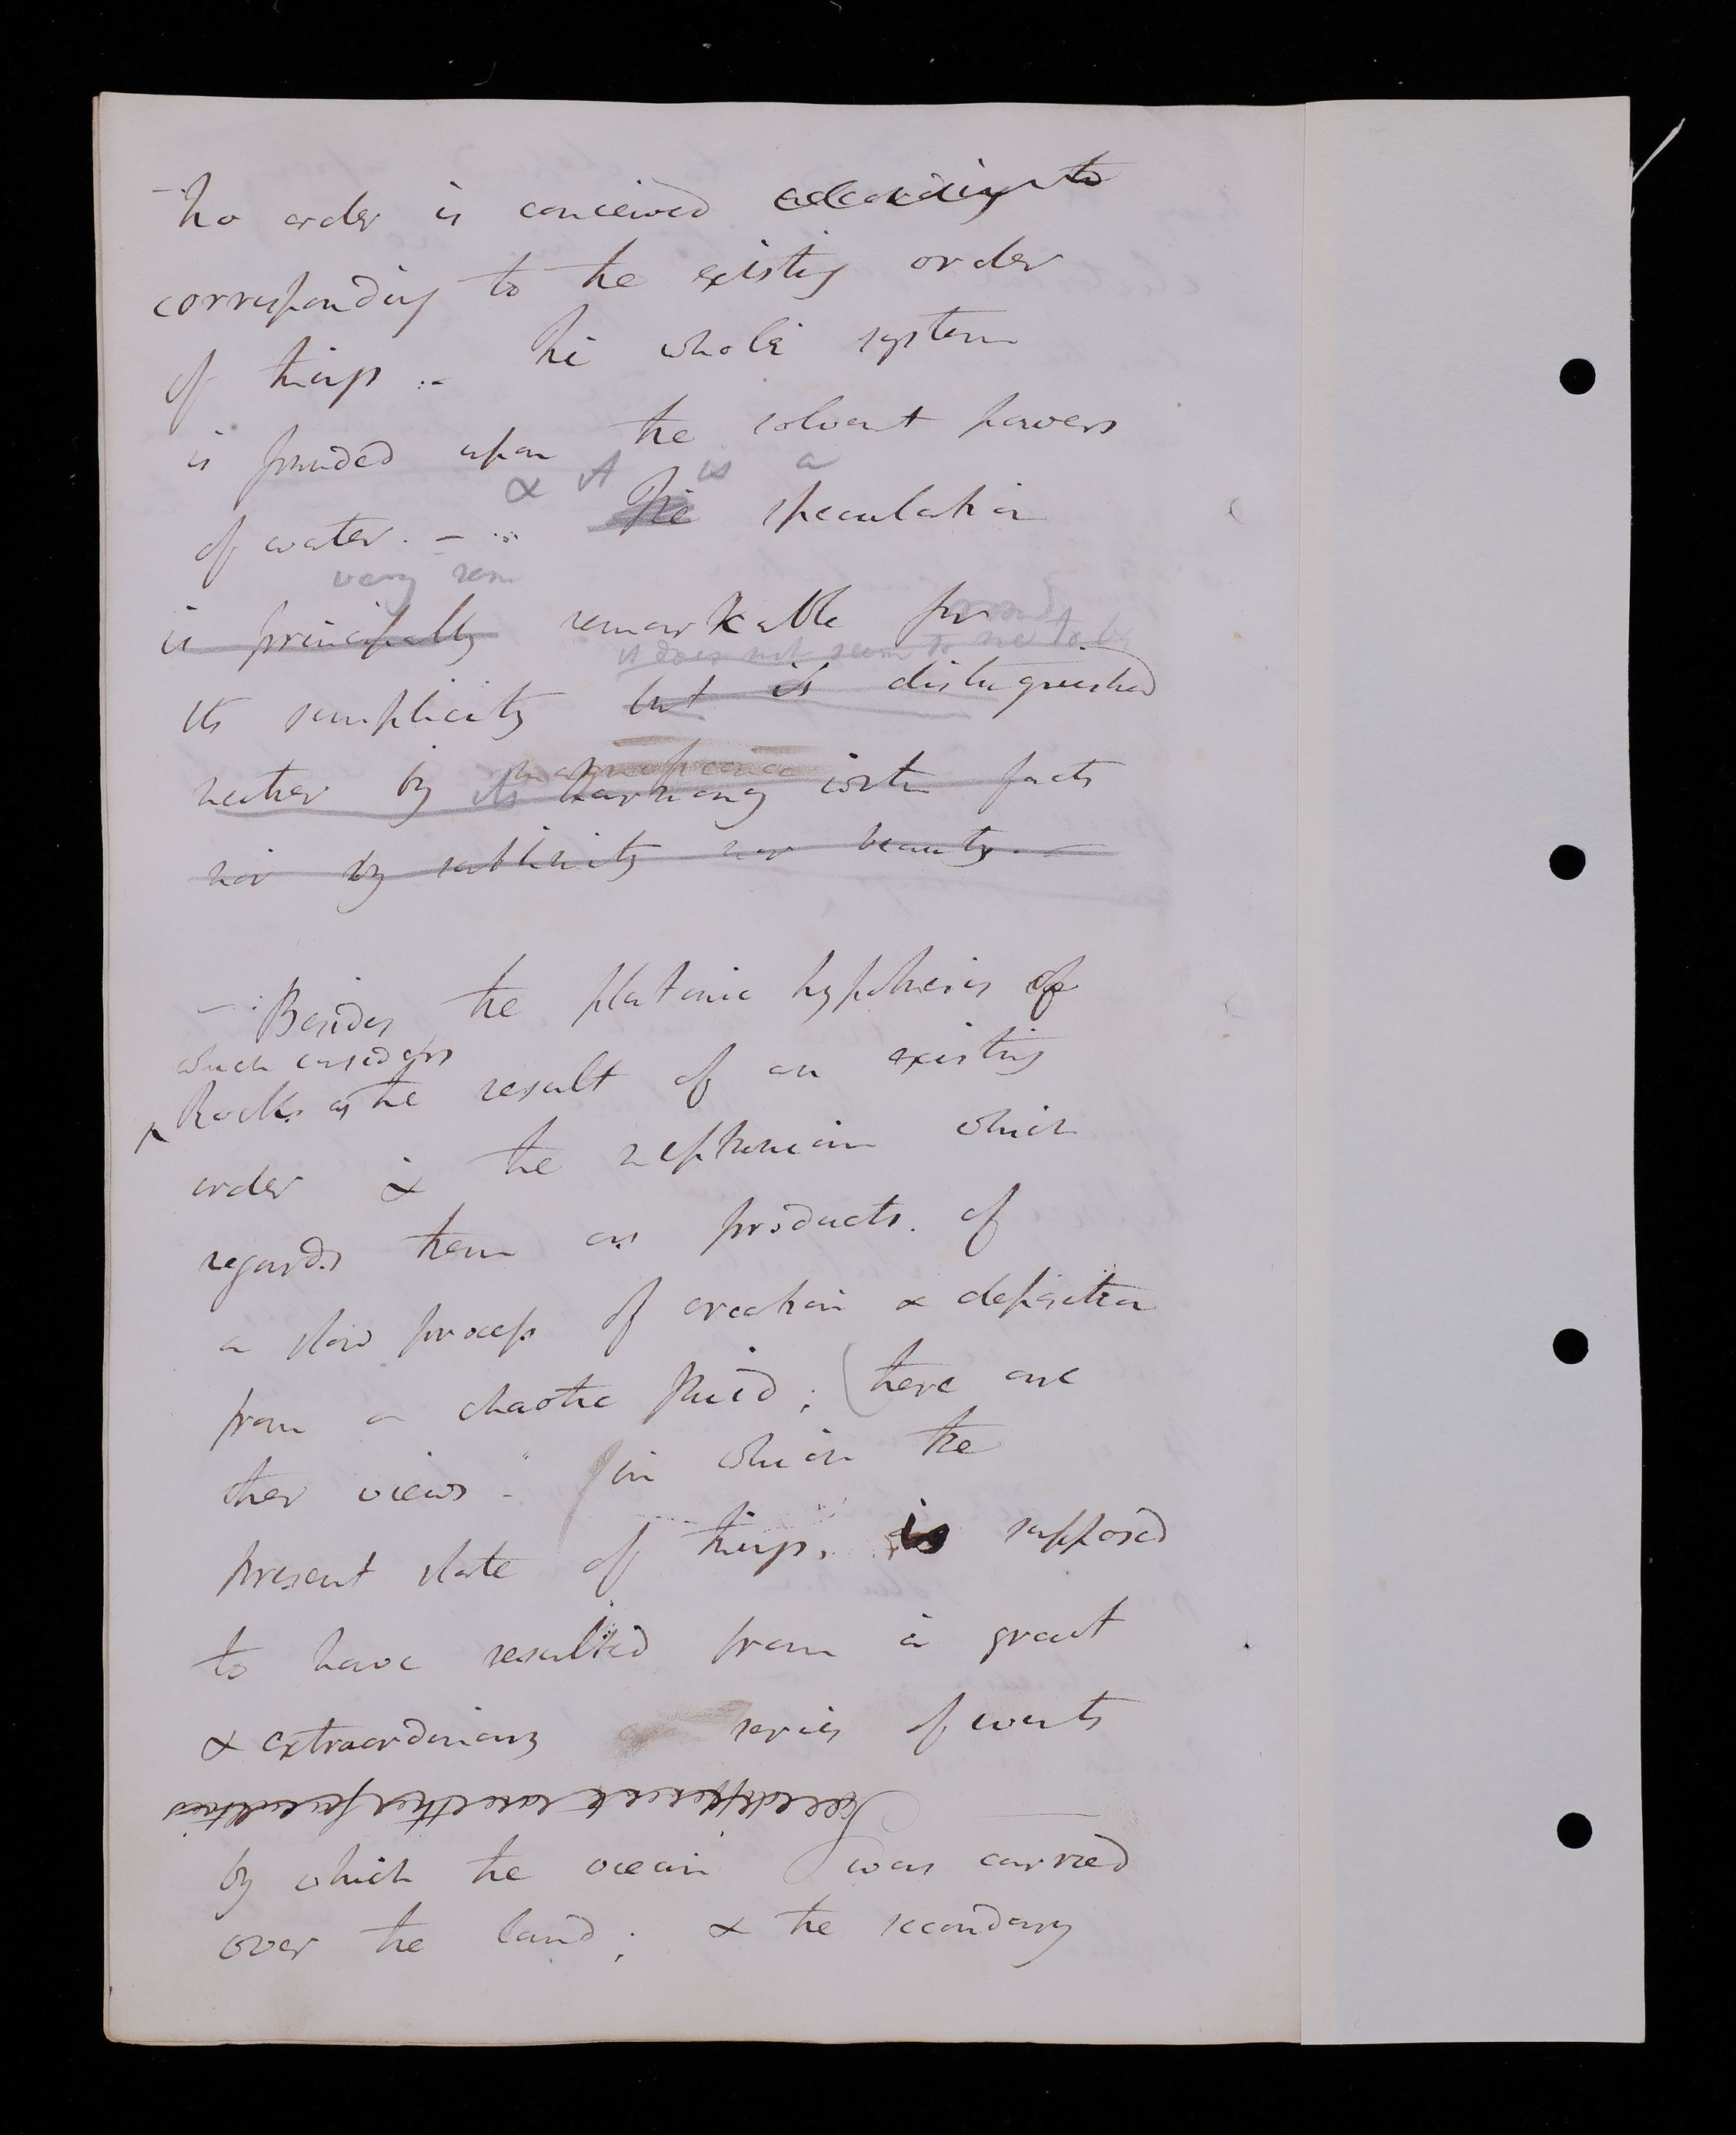 - No order is conceived according to
corresponding to the existing order
of things :- The whole system
is founded upon the solvent powers
& it is a
of water. - The speculation
very rem
is principally remarkable for
it does not seem to me to be
its simplicity but is distinguished
magnificence
neither by its harmony with facts
nor by sublimity nor beauty. -
- Besides the platonic hypothesis of
which considers
Rocks as the result of an existing
order & the neptunian which
regards them as products of
a slow process of creation & deposition
from a chaotic fluid; (there are
other views - in which the
present state of things, is supposed
to have resulted from a great
& extraordinary series of events
by which the ocean was carried
over the land; & the secondary